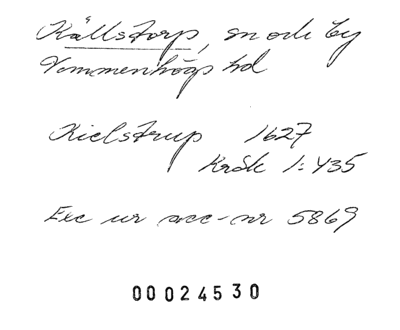 Källstorp, sn och by
Vemmenhögs hd
Kielstrup 1627
Krók 1:435
Exc ur acc-nr 5869
00024530